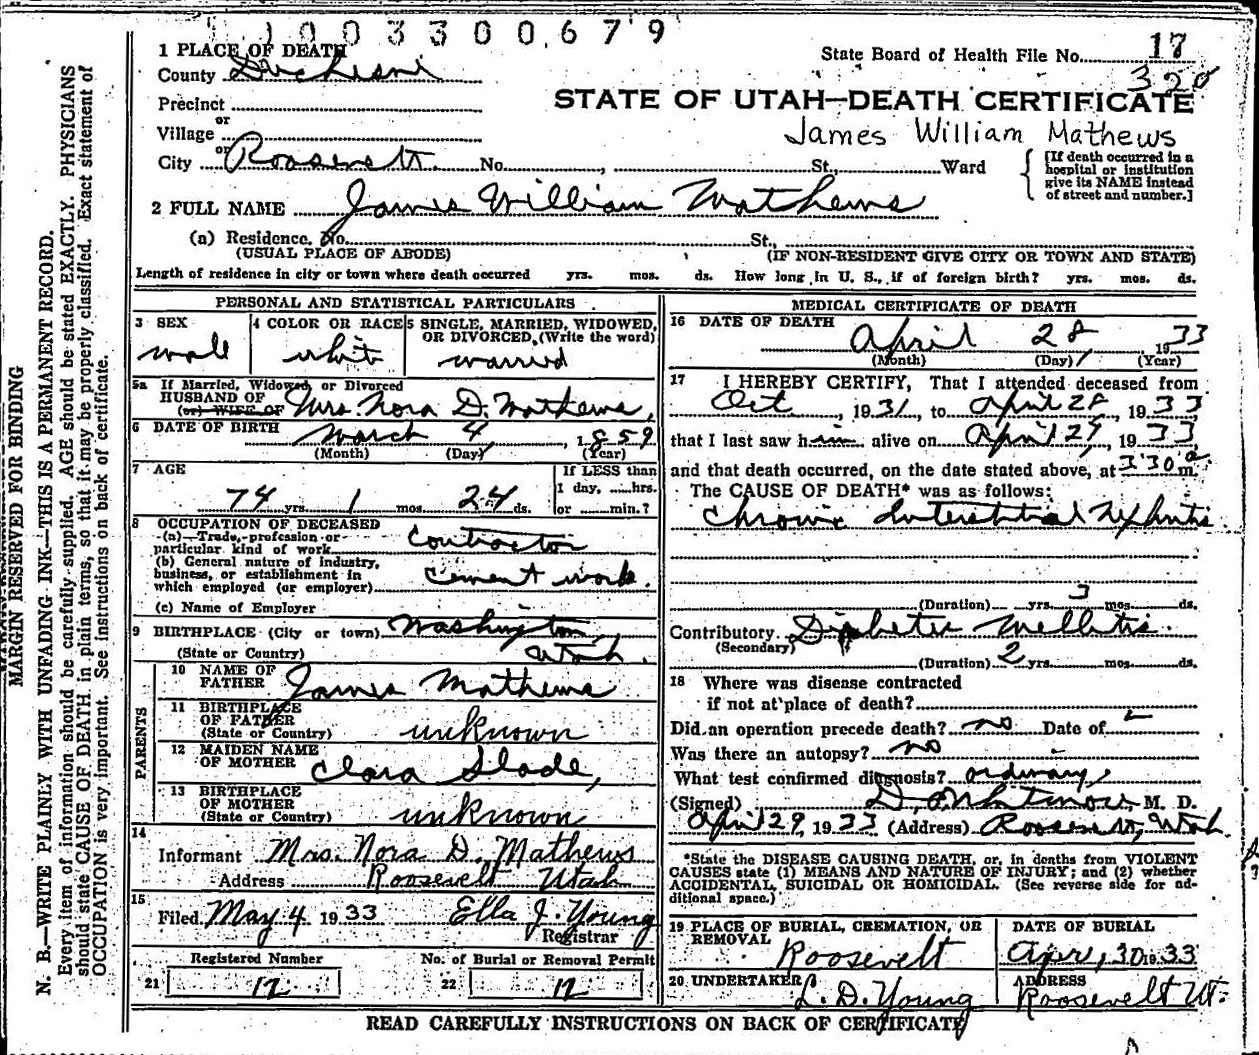 1003300679
1 PLACE OF DEATH
State Board of Health File No. 17
County Duchesne
320
Precinct
STATE OF UTAH—DEATH CERTIFICATE
or
Village
James William Mathews
or
City Roosevelt No. , St., Ward
[If death occurred in a
hospital or institution
give its NAME instead
of street and number.]
2 FULL NAME James William Mathews
(a) Residence. No. St.,
(USUAL PLACE OF ABODE) (IF NON-RESIDENT GIVE CITY OR TOWN AND STATE)
Length of residence in city or town where death occurred yrs. mos. ds. How long in U. S., if of foreign birth? yrs. mos. ds.
PERSONAL AND STATISTICAL PARTICULARS
3 SEX
male
4 COLOR OR RACE
white
5 SINGLE, MARRIED, WIDOWED,
OR DIVORCED, (Write the word)
married
5a If Married, Widowed, or Divorced
HUSBAND OF
(or) WIFE OF Mrs. Nora D. Mathews,
6 DATE OF BIRTH March 4, 1859
(Month) (Day) (Year)
7 AGE
74 yrs. 1 mos. 24 ds.
If LESS than
1 day, hrs.
or min.?
8 OCCUPATION OF DECEASED
(a) Trade, profession or
particular kind of work Contractor
(b) General nature of industry,
business, or establishment in
which employed (or employer) cement work.
(c) Name of Employer
9 BIRTHPLACE (City or town) Washington
(State or Country) Utah.
PARENTS
10 NAME OF
FATHER James Mathews
11 BIRTHPLACE
OF FATHER
(State or Country) unknown
12 MAIDEN NAME
OF MOTHER Clara Slade,
13 BIRTHPLACE
OF MOTHER
(State or Country) unknown
14
Informant Mrs. Nora D. Mathews
Address Roosevelt Utah
15
Filed May 4 1933 Ella J. Young
Registrar
Registered Number
21 12
No. of Burial or Removal Permit
22 12
MEDICAL CERTIFICATE OF DEATH
16 DATE OF DEATH
April 28, 1933
(Month) (Day) (Year)
17 I HEREBY CERTIFY, That I attended deceased from
Oct, 1931, to April 28, 1933
that I last saw him alive on April 27, 1933
and that death occurred, on the date stated above, at 3 30 a m.
The CAUSE OF DEATH* was as follows:
Chronic Interstitial Nephritis
(Duration) yrs. 3 mos. ds.
Contributory Diabetes Mellitis.
(Secondary)
(Duration) 2 yrs. mos. ds.
18 Where was disease contracted
if not at place of death?
Did an operation precede death? no Date of
Was there an autopsy? no
What test confirmed diagnosis? ordinary
(Signed) M. D.
April 29, 1933 (Address) Roosevelt, Utah
*State the DISEASE CAUSING DEATH, or, in deaths from VIOLENT
CAUSES state (1) MEANS AND NATURE OF INJURY; and (2) whether
ACCIDENTAL, SUICIDAL OR HOMICIDAL. (See reverse side for ad-
ditional space.)
19 PLACE OF BURIAL, CREMATION, OR
REMOVAL
Roosevelt
DATE OF BURIAL
Apr, 30 1933
20 UNDERTAKER
L. D. Young
ADDRESS
Roosevelt Ut.
READ CAREFULLY INSTRUCTIONS ON BACK OF CERTIFICATE
MARGIN RESERVED FOR BINDING
N. B.—WRITE PLAINLY WITH UNFADING INK—THIS IS A PERMANENT RECORD.
Every item of information should be carefully supplied. AGE should be stated EXACTLY. PHYSICIANS
should state CAUSE OF DEATH in plain terms, so that it may be properly classified. Exact statement of
OCCUPATION is very important. See instructions on back of certificate.